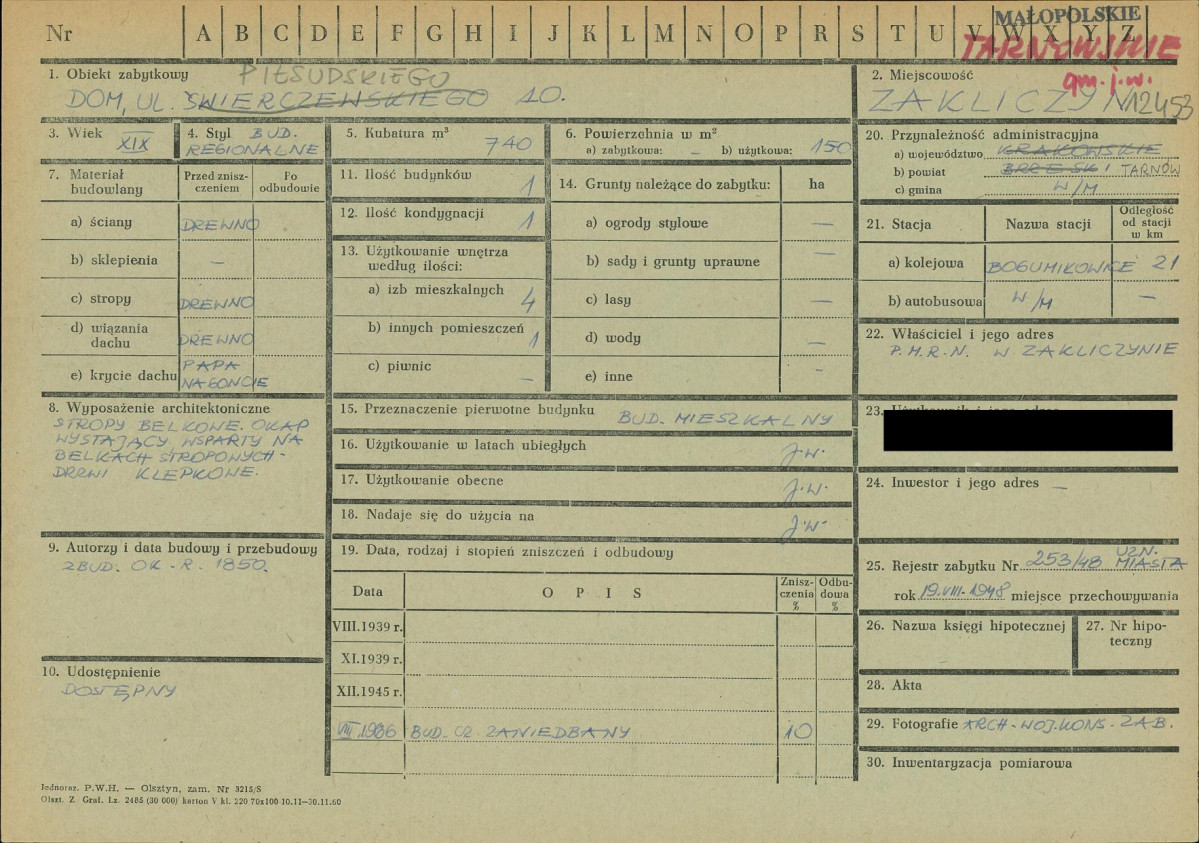 Nr A B C D E F G H I J K L M N O P R S T U V W X Y Z
MAŁOPOLSKIE
TARNOWSKIE
gm. j.w.
1. Obiekt zabytkowy
PIŁSUDSKIEGO
DOM, UL. ŚWIERCZEWSKIEGO 10.
2. Miejscowość
ZAKLICZYN 12453
3. Wiek
XIX
4. Styl BUD.
REGIONALNE
5. Kubatura m³
740
6. Powierzchnia w m²
a) zabytkowa: – b) użytkowa: 150
7. Materiał budowlany
Przed zniszczeniem
Po odbudowie
a) ściany DREWNO
b) sklepienia –
c) stropy DREWNO
d) wiązania dachu DREWNO
e) krycie dachu PAPA
NA GONCIE
8. Wyposażenie architektoniczne
STROPY BELKOWE. OKAP
WYSTAJĄCY WSPARTY NA
BELKACH STROPOWYCH-
DRZWI KLEPKOWE.
9. Autorzy i data budowy i przebudowy
ZBUD. OK-R. 1850.
10. Udostępnienie
DOSTĘPNY
11. Ilość budynków 1
12. Ilość kondygnacji 1
13. Użytkowanie wnętrza
według ilości:
a) izb mieszkalnych 4
b) innych pomieszczeń 1
c) piwnic –
14. Grunty należące do zabytku: ha
a) ogrody stylowe –
b) sady i grunty uprawne –
c) lasy –
d) wody –
e) inne –
15. Przeznaczenie pierwotne budynku BUD. MIESZKALNY
16. Użytkowanie w latach ubiegłych J.W.
17. Użytkowanie obecne J.W.
18. Nadaje się do użycia na J.W.
19. Data, rodzaj i stopień zniszczeń i odbudowy
Data OPIS Zniszczenia % Odbudowa %
VIII.1939 r.
XI.1939 r.
XII.1945 r.
VIII.1966 BUD. CZ. ZANIEDBANY 10
20. Przynależność administracyjna
a) województwo KRAKOWSKIE
b) powiat BRZESKI TARNÓW
c) gmina W/M
21. Stacja Nazwa stacji Odległość od stacji w km
a) kolejowa BOGUMIŁOWICE 21
b) autobusowa W/M –
22. Właściciel i jego adres
P.M.R.N. W ZAKLICZYNIE
23. Użytkownik i jego adres
24. Inwestor i jego adres –
25. Rejestr zabytku Nr 253/48 UZN.
MIASTA
rok 19.VIII-1948 miejsce przechowywania
26. Nazwa księgi hipotecznej
27. Nr hipoteczny
28. Akta
29. Fotografie ARCH-WOJ.KONS-ZAB.
30. Inwentaryzacja pomiarowa
Jednoraz. P.W.H. — Olsztyn, zam. Nr 3215/S
Olszt. Z. Graf. Lz. 2485 (30 000) karton V kl. 220 70x100 10.11—30.11.60